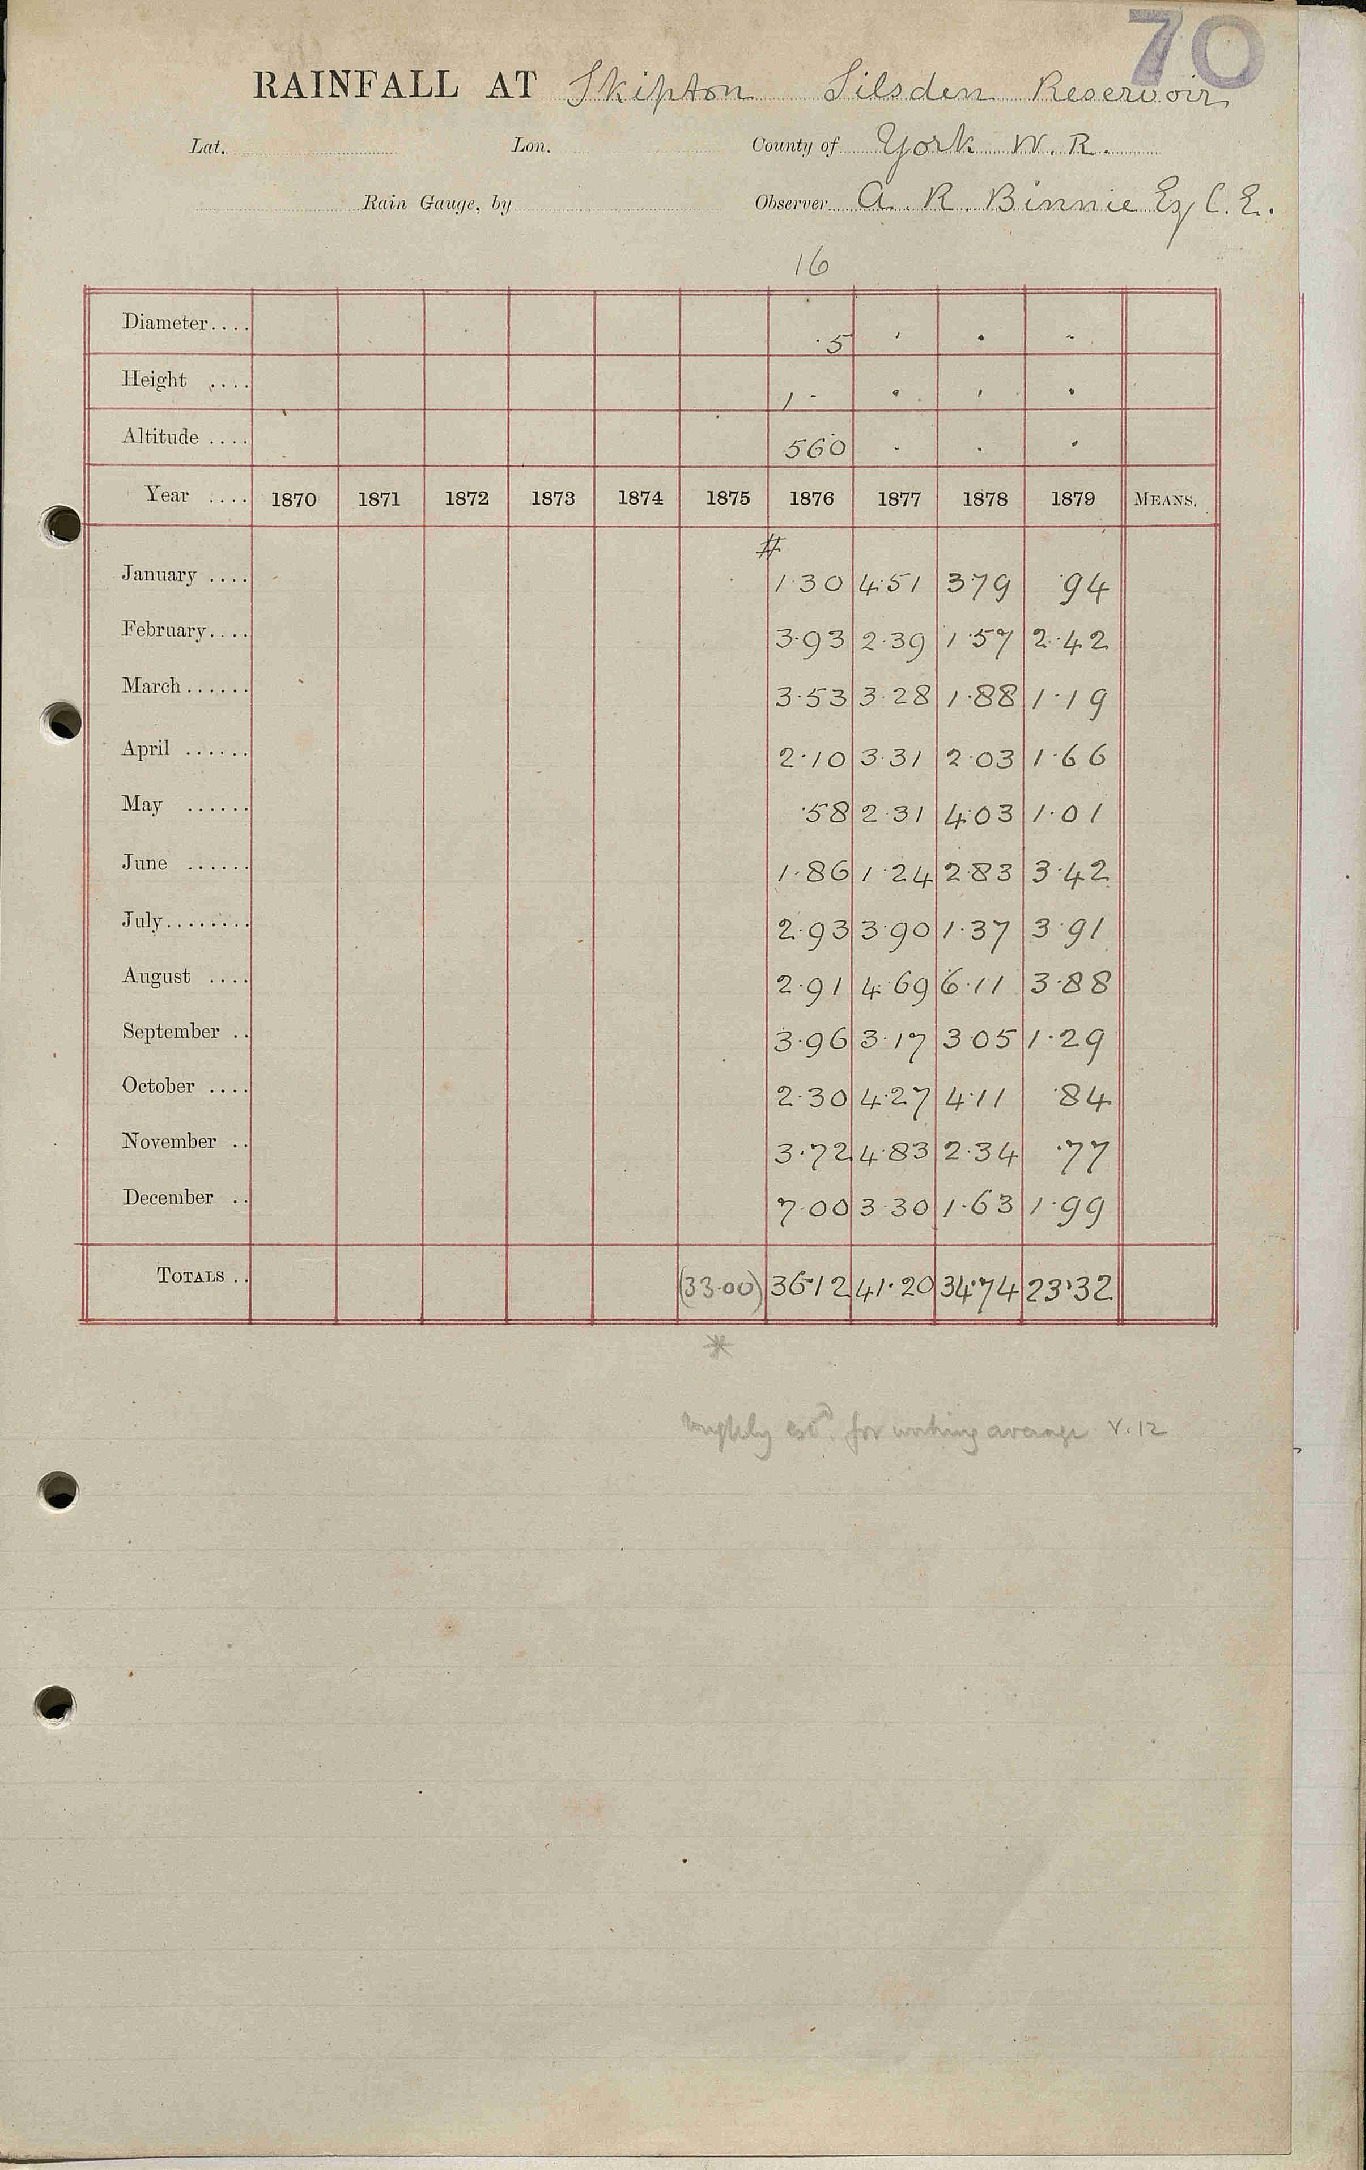 70
RAINFALL AT Skipton Silsden Reservoir
Lat. Lon. County of York W. R.
Rain Gauge, by Observer A. R. Binnie Esq C. E.
16
Diameter.... 5 " " "
Height .... 1 - " " "
Altitude .... 560 " " "
Year .... 1870 1871 1872 1873 1874 1875 1876 1877 1878 1879 MEANS.
#
January .... 1.30 4.51 3.79 .94
February.... 3.93 2.39 1.57 2.42
March...... 3.53 3.28 1.88 1.19
April ...... 2.10 3.31 2.03 1.66
May ...... .58 2.31 4.03 1.01
June ...... 1.86 1.24 2.83 3.42
July........ 2.93 3.90 1.37 3.91
August .... 2.91 4.69 6.11 3.88
September .. 3.96 3.17 3.05 1.29
October .... 2.30 4.27 4.11 .84
November .. 3.72 4.83 2.34 .77
December .. 7.00 3.30 1.63 1.99
TOTALS .. (33.00) 36.12 41.20 34.74 23.32
*
roughly estd. for working average V.12